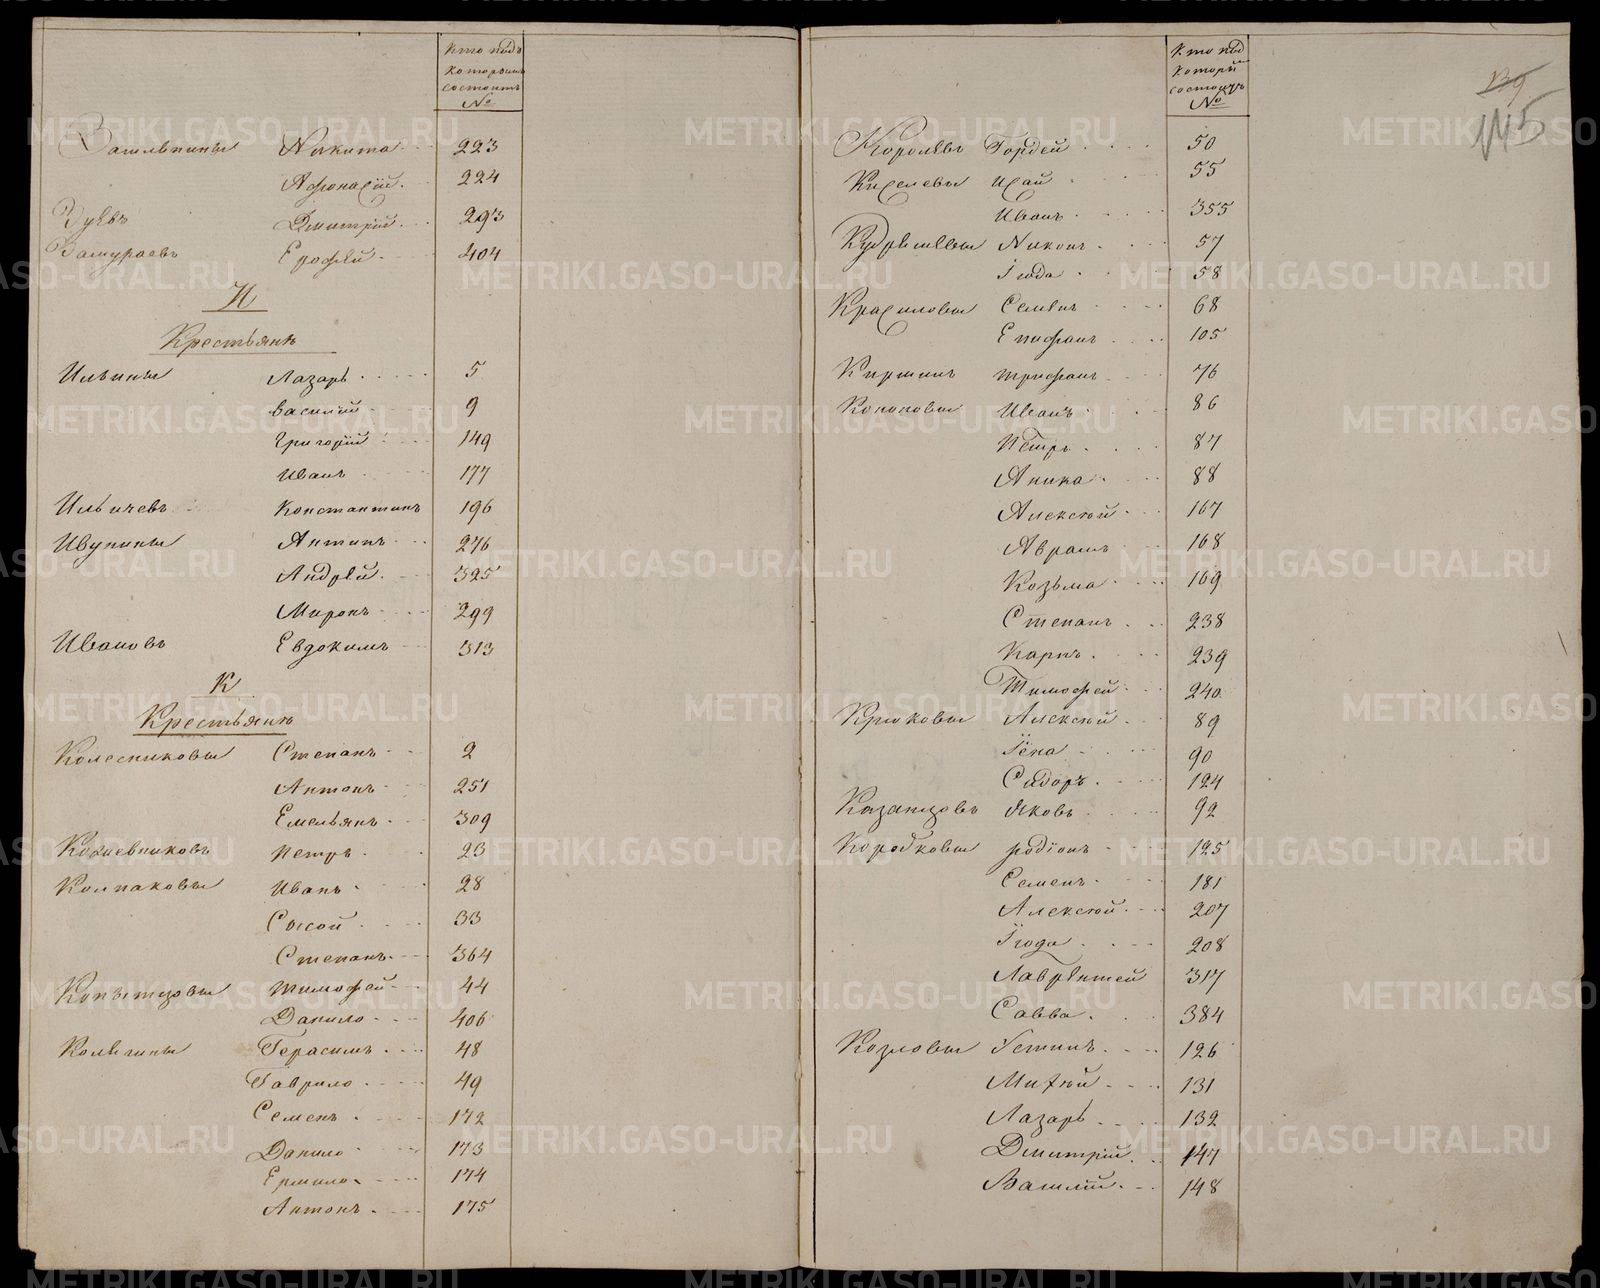 Кто подъ
которымъ
состоитъ
№
Никита 223
Афонасій 224
Зуевъ Дмитрій 293
Замураевъ Ерофѣй 404
И
Крестьянѣ
Ильины Лазарь 5
Василій 9
Григорій 149
Иванъ 177
Ильичевъ Константинъ 196
Ивунины Антипъ 276
Андрѣй 325
Миронъ 299
Ивановъ Евдокимъ 313
К
Крестьянѣ
Колесниковы Степанъ 2
Антонъ 251
Емельянъ 309
Кожевниковъ Петръ 23
Колпаковы Иванъ 28
Сысой 33
Степанъ 364
Копытцовы Тимофей 44
Данило 406
Герасимъ 48
Гаврило 49
Семенъ 172
Данило 173
Ермило 174
Антонъ 175
Кто под
которы
состоитъ
№
139
145
Королевъ Гордей 50
Киселевы Исай 55
Иванъ 355
Кудряшевы Никонъ 57
Іюда 58
Красиловы Семенъ 68
Епифанъ 105
Киршинъ Трифанъ 76
Кононовы Иванъ 86
Петръ 87
Аника 88
Алексѣй 167
Аврамъ 168
Козьма 169
Степанъ 238
Карпъ 239
Тимофей 240
Крюковы Алексѣй 89
90
Сидоръ 124
Казанцовъ Яковъ 92
Коробковы Родіонъ 125
Семенъ 181
Алексѣй 207
Іюда 208
Лаврѣнтей 317
Савва 384
Козловы Устинъ 126
Михѣй 131
Лазарь 132
Дмитрій 147
Василій 148
METRIKI.GASO-URAL.RU